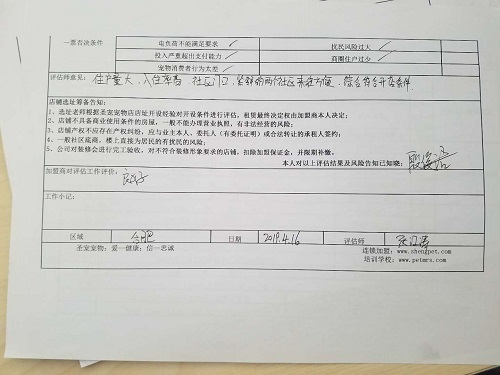 一票否决条件 电负荷不能满足要求 ✓ 扰民风险过大 ✓
投入严重超出支付能力 ✓ 商圈住户过少 ✓
宠物消费者行为太差 ✓
评估师意见：住户量大，入住率高 社区门口，
店铺选址筹备告知：
1、选址老师根据圣宠宠物店店址开设经验对开设条件进行评估，租赁最终决定权由加盟商本人决定；
2、店铺不具备商业使用条件的房屋，一般不能办理营业执照，有非法经营的风险；
3、店铺产权不应存在产权纠纷，应与业主本人、委托人（有委托证明）或合法转让的承租人签约；
4、一般社区底商，楼上直接为居民的有扰民的风险；
5、公司对装修会进行完工验收，对不符合装修形象要求的店铺，扣除加盟保证金，并限期补缴。
本人对以上评估结果及风险告知已知晓：
加盟商对评估工作评价：良好
工作小记：
区域 合肥 日期 2019.4.16 评估师
圣宠宠物：爱—健康；信—忠诚 连锁加盟：www.shengpet.com
培训学校：www.petmrs.com